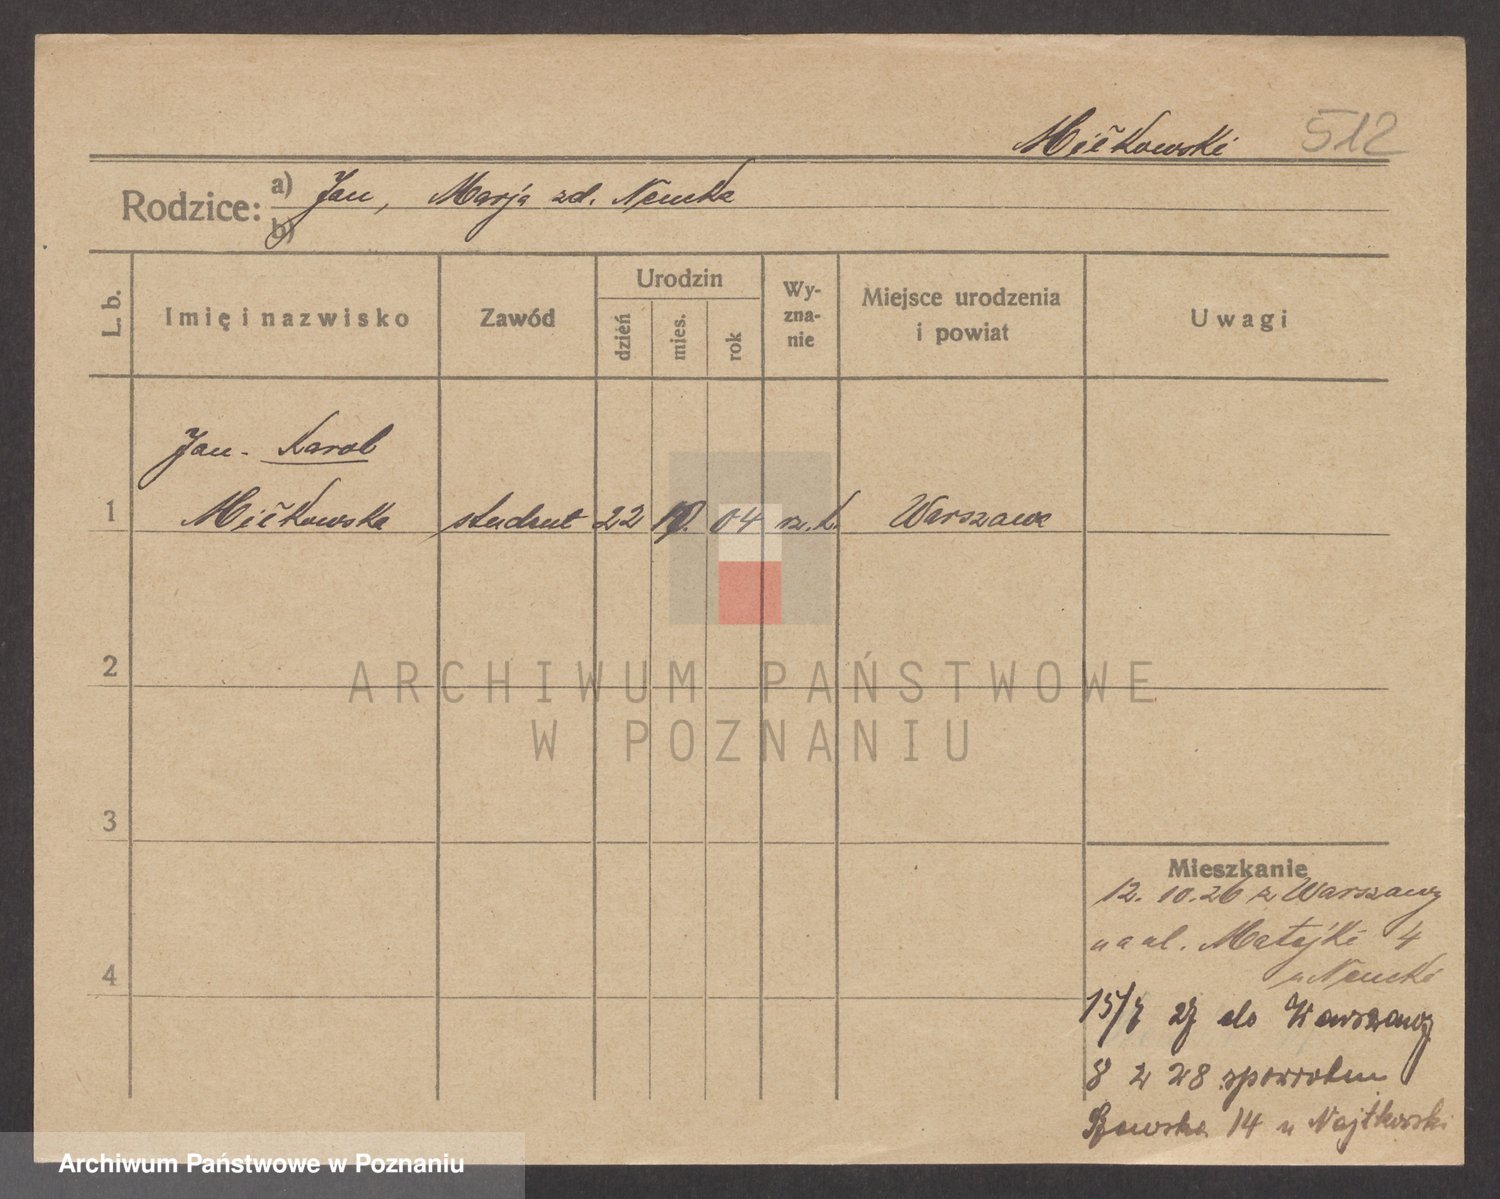 Mičkowski 512
Rodzice: a) Jan, Marja zd. Nencka
b)
L. b.
Imię i nazwisko
Zawód
Urodzin
dzień
mies.
rok
Wy-
zna-
nie
Miejsce urodzenia
i powiat
Uwagi
Jan-Karol
1 Mičkowski student 22 10. 04 rz. k. Warszawa
2
ARCHIWUM PAŃSTWOWE
W POZNANIU
3
Mieszkanie
12. 10. 26 z Warszawy
4
na ul. Matejki 4
u Nencki
15/7 27 do Warszawy
8 2 28 zpowrotem
14 u
Archiwum Państwowe w Poznaniu